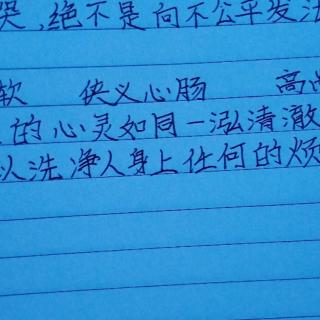 哭,绝不是向不公平发
软 侠义心肠 高尚
的心灵如同一泓清澈
以洗净人身上任何的烦